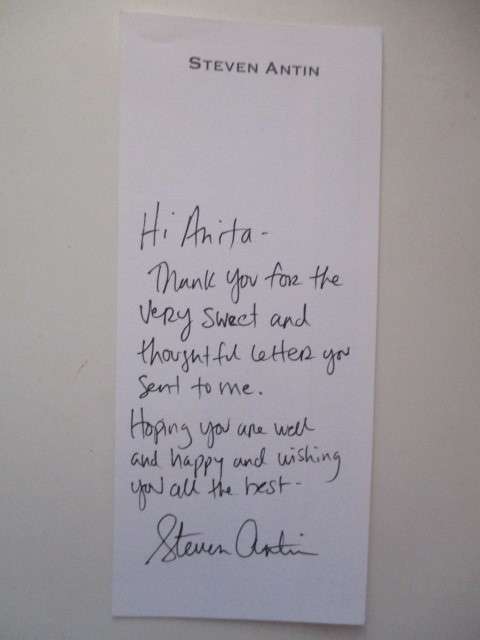 STEVEN ANTIN
Hi Anita -
Thank you for the
very sweet and
thoughtful letter you
sent to me.
Hoping you are well
and happy and wishing
you all the best -
Steven Antin